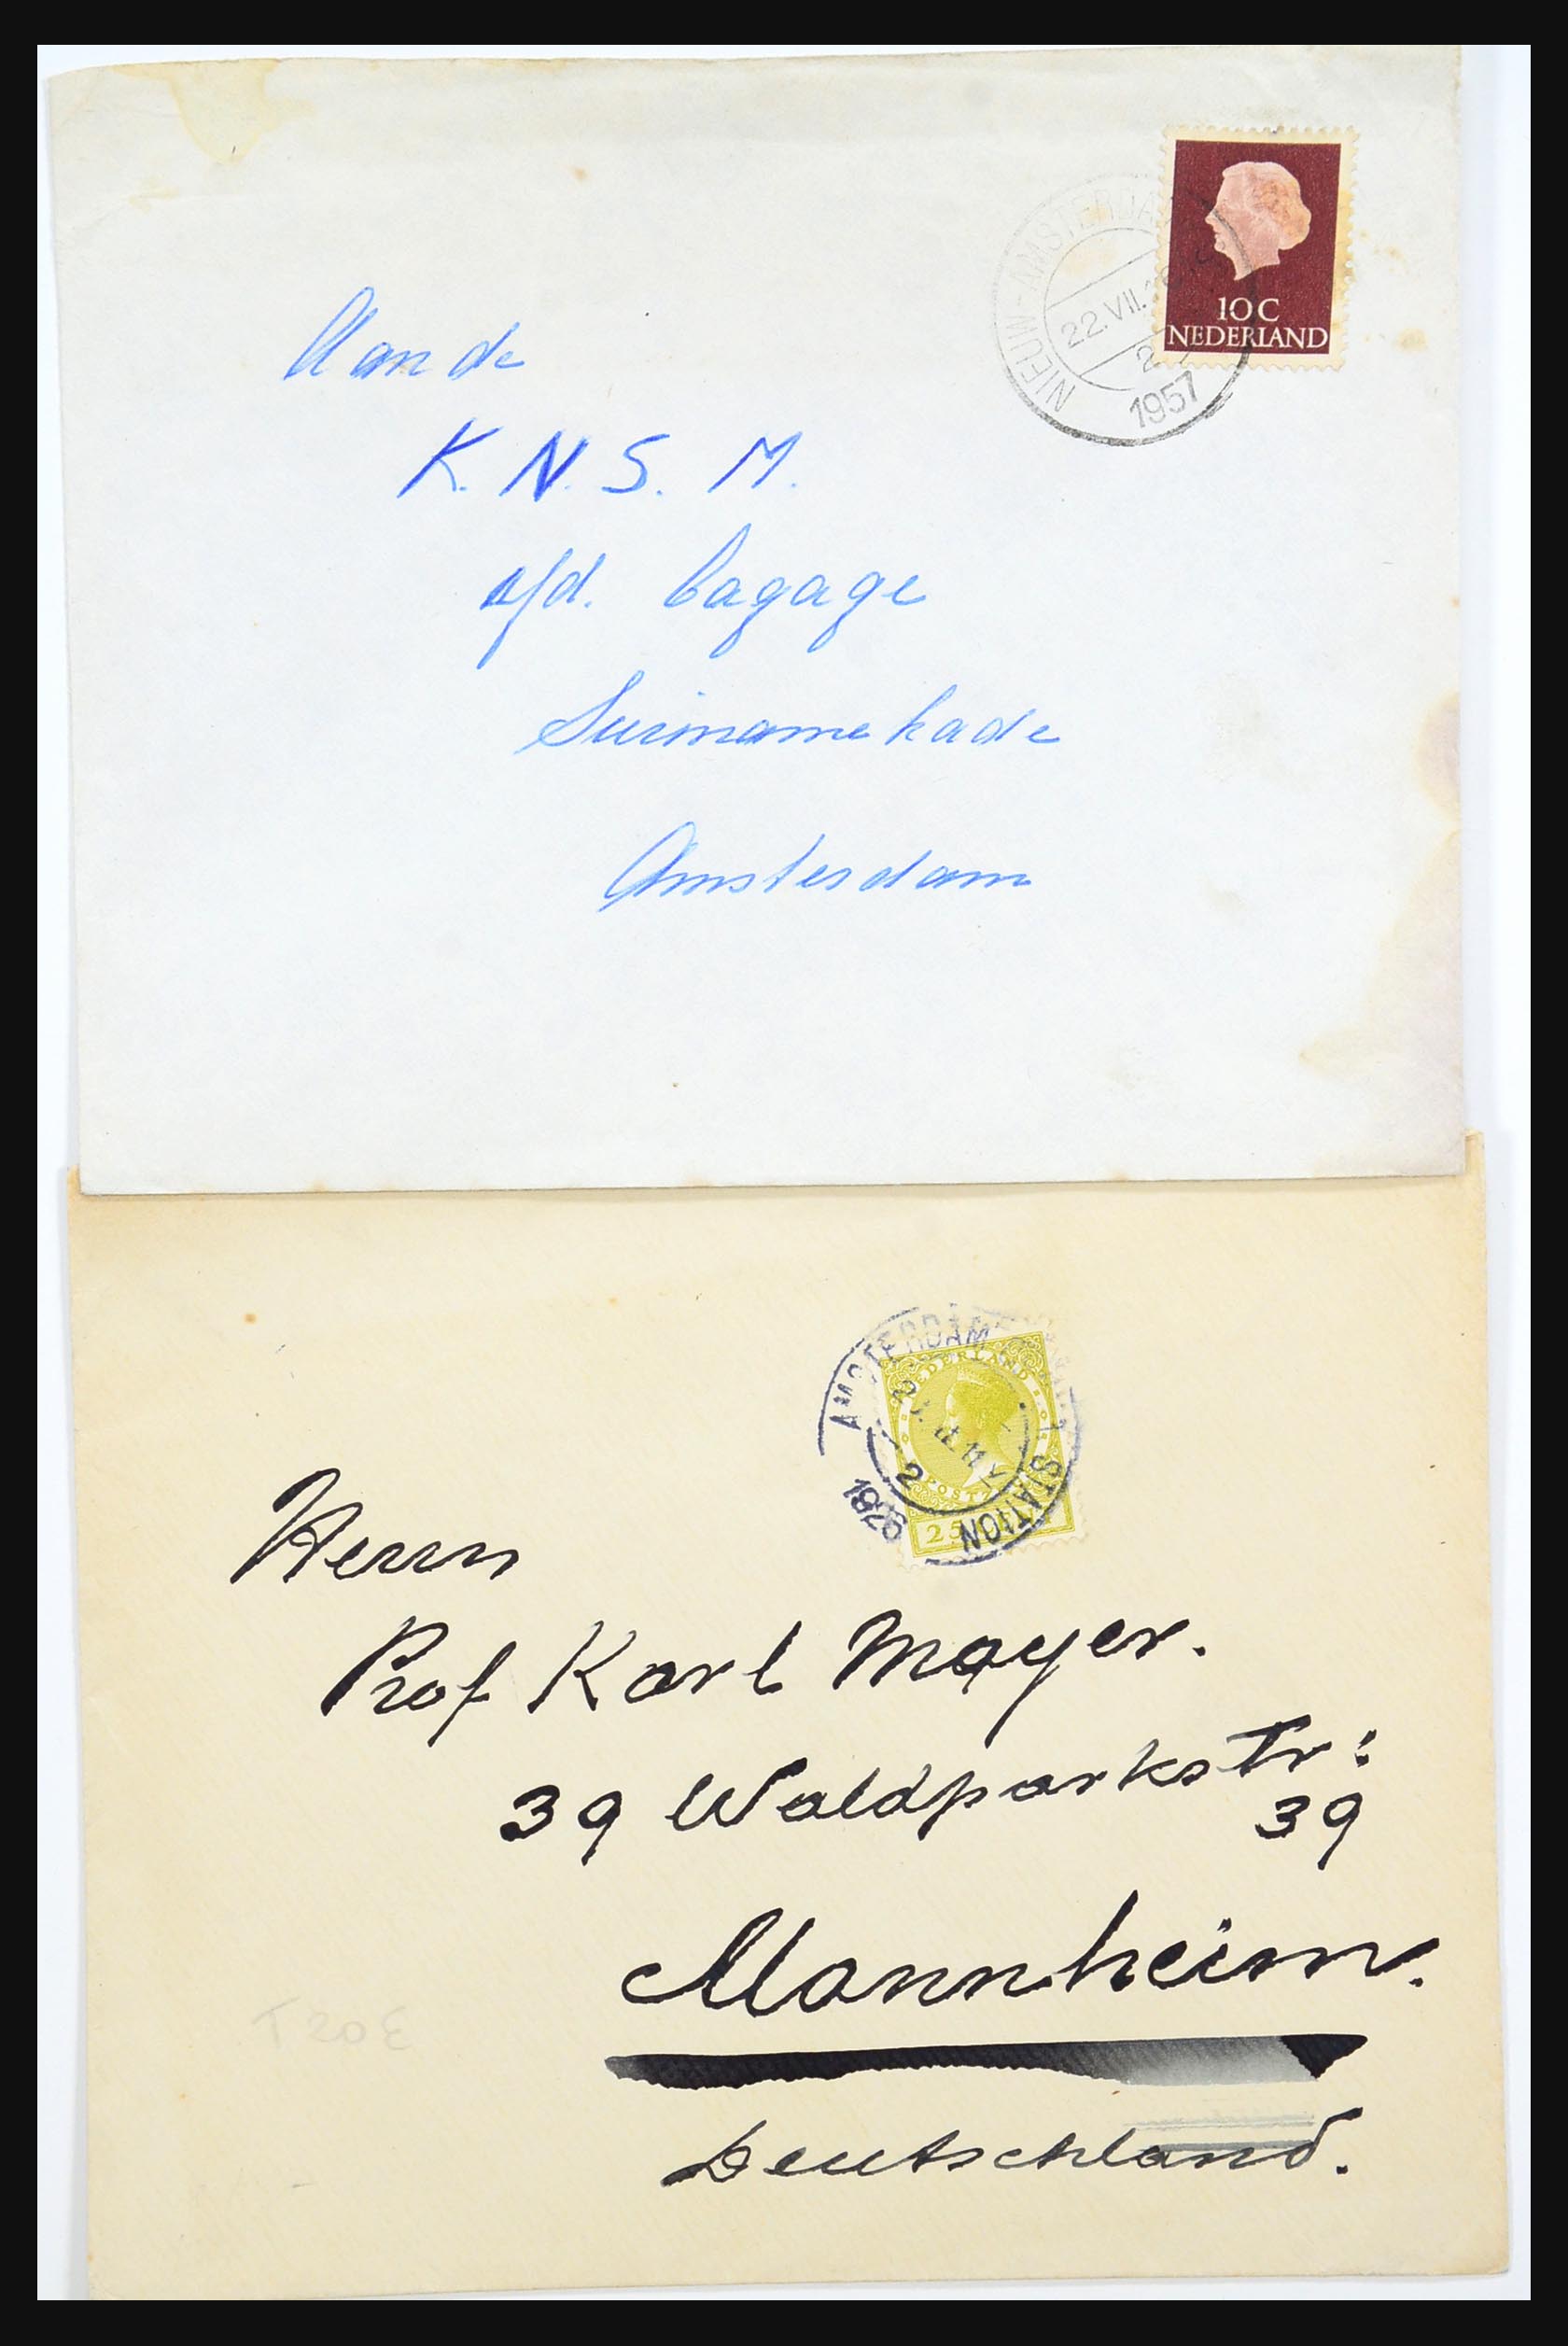 NIEUW-AMSTERDAM
22.VII.
1957
10C
NEDERLAND
Aan de
K. N. S. M.
afd. bagage
Surinamekade
Amsterdam
AMSTERDAM
STATION
2
NEDERLAND
POSTZ
25
Herrn
Prof Karl Mayer.
39 Waldparkstr:
39
Mannheim.
Deutschland.
T 20 E